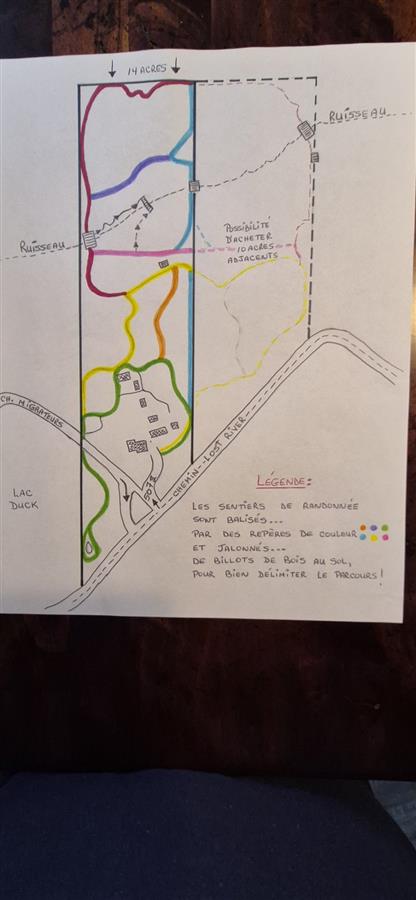 14 ACRES
RUISSEAU
RUISSEAU
POSSIBILITÉ
D'ACHETER
10 ACRES
ADJACENTS
CH. MIGRATEURS
5078
CHEMIN LOST RIVER
LAC
DUCK
LÉGENDE:
LES SENTIERS DE RANDONNÉE
SONT BALISÉS...
PAR DES REPÈRES DE COULEUR
ET JALONNÉS...
DE BILLOTS DE BOIS AU SOL,
POUR BIEN DÉLIMITER LE PARCOURS!